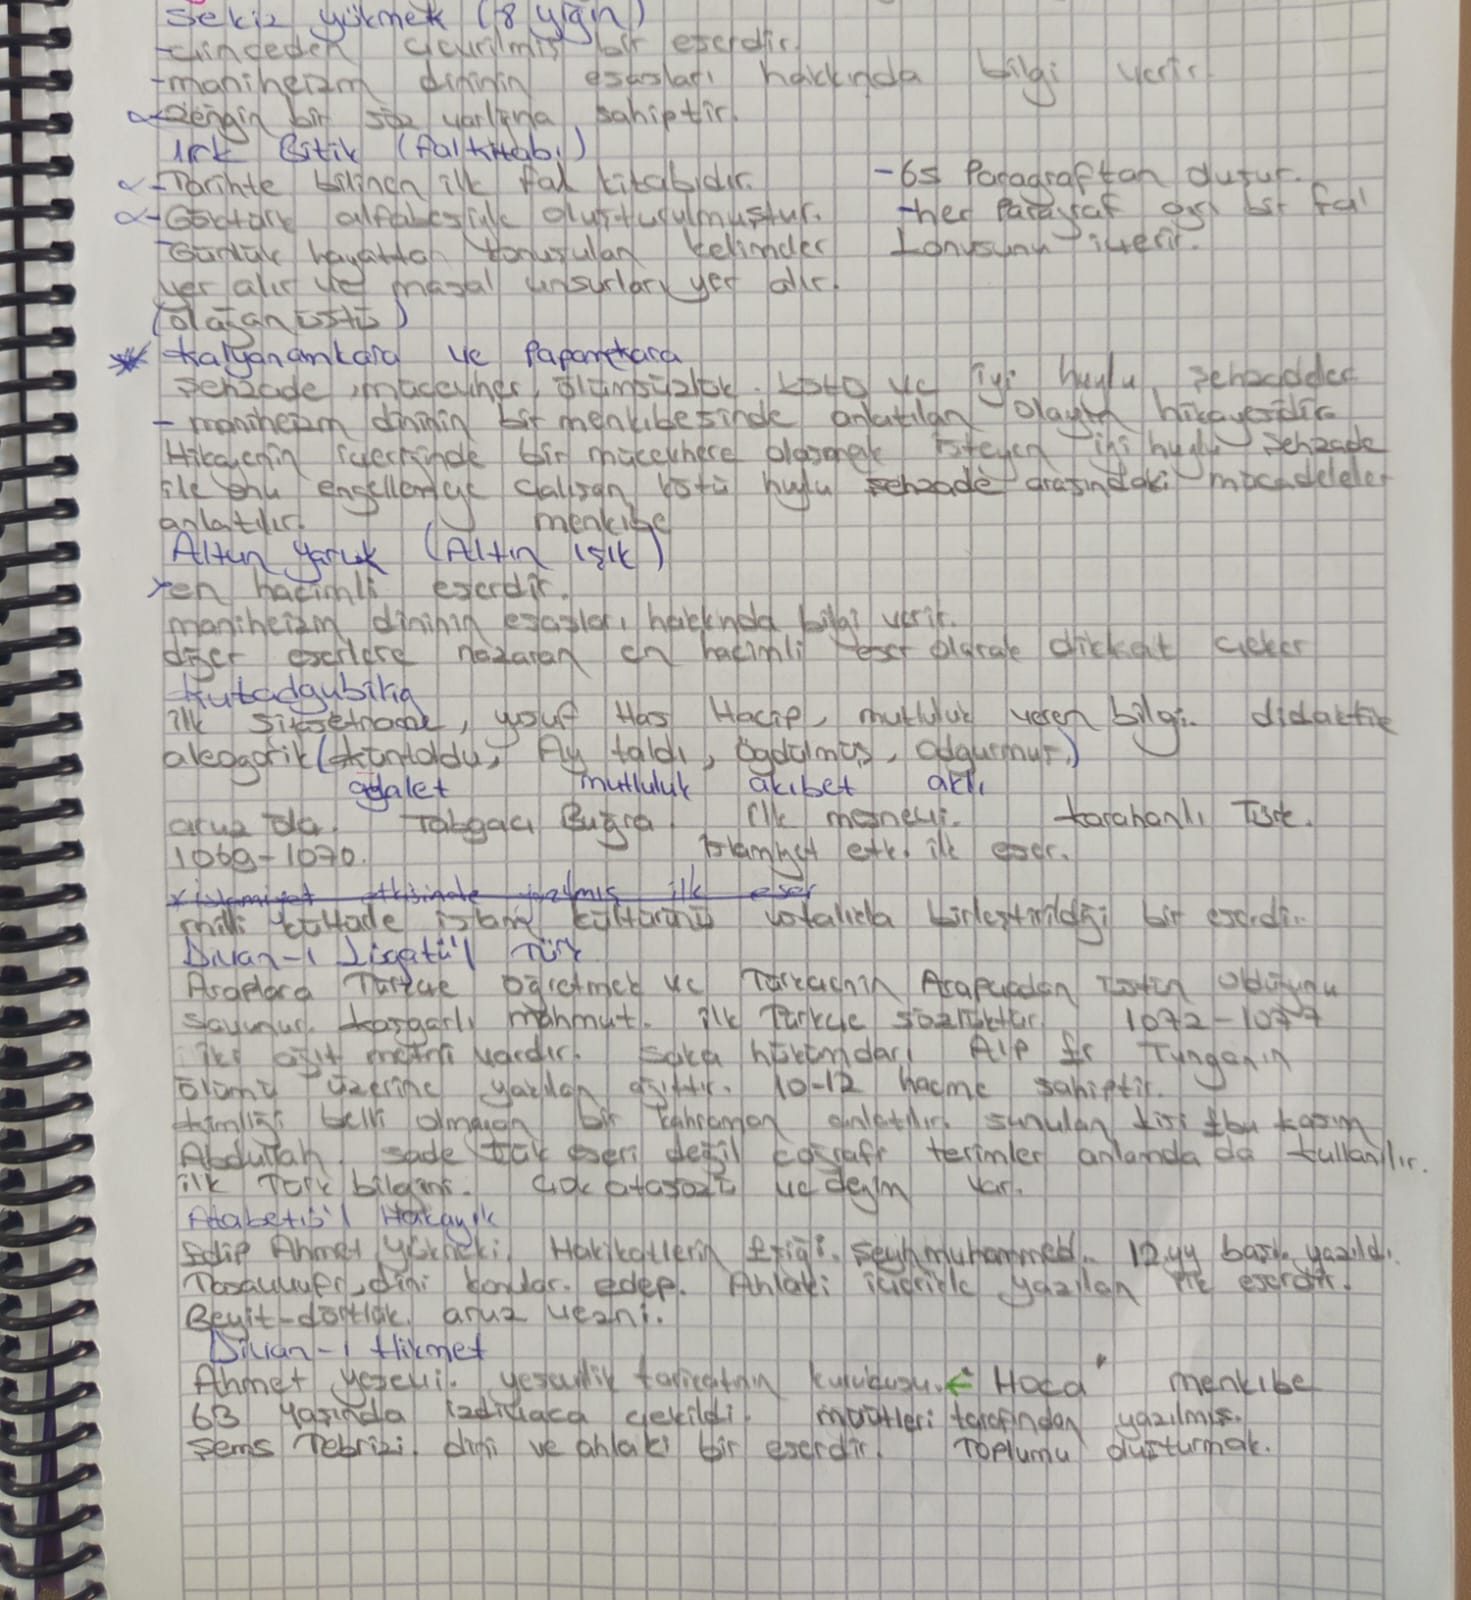 Sekiz yükmek (8 yığın)
-çinceden çevrilmiş bir eserdir.
-maniheizm dininin esasları hakkında bilgi verir.
-Zengin bir söz varlığına sahiptir.
Irk Bitik (fal kitabı)
-Tarihte bilinen ilk fal kitabıdır. -65 Paragraftan oluşur.
-Göktürk alfabesiyle oluşturulmuştur. -her Paragraf ayrı bir fal
-Günlük hayattan konuşulan kelimeler konusunu içerir.
yer alır ve masal unsurları yer alır.
(olağanüstü)
Kalyanamkara ve Papamkara
Şehzade, mücevher, ölümsüzlük. kötü ve iyi huylu şehzadeler
- maniheizm dininin bir menkıbesinde anlatılan olayın hikayesidir
Hikayenin içerisinde bir mücevhere ulaşmak isteyen iyi huylu şehzade
ile onu engellemeye çalışan kötü huylu şehzade arasındaki mücadeleler
anlatılır. menkıbe
Altun yaruk (Altın ışık)
en hacimli eserdir.
maniheizm dininin esasları hakkında bilgi verir.
diğer eserlere nazaran en hacimli eser olarak dikkat çeker
Kutadgubilig
ilk siyasetname, yusuf Has Hacip, mutluluk veren bilgi. didaktik
alegorik (küntoldu, Ay toldı, ögdülmüş, odgurmuş)
adalet mutluluk akıbet akıl
aruz Tabgaç Buğra. ilk mesnevi. Karahanlı Türk.
1069-1070. İslamiyet etk. ilk eser.
x islamiyet etkisinde yazılmış ilk eser
milli kültürle islami kültürünü ustalıkla birleştirildiği bir eserdir.
Divan-ı Lügatü'l Türk
Araplara Türkçe öğretmek ve Türkçenin Arapçadan üstün olduğunu
savunur. kaşgarlı mahmut. ilk Türkçe sözlüktür 1072-1077
iki ağıt metni vardır. Saka hükümdarı Alp Er Tunganın
ölümü üzerine yazılan ağıttır. 10-12 hacme sahiptir.
kimliği belli olmayan bir kahraman anlatılır. sunulan kişi Ebu kasım
Abdullah. sade dil eseri değil coğrafi terimler anlamda da kullanılır.
ilk Türk bilgini. Çok atasözü ve deyim var.
Atabetü'l Hakayık
Edip Ahmet Yükneki. Hakikatlerin Eşiği. Seyhmuhammed. 12.yy başı. yazıldı.
Tasavvufi, dini konular. edep. Ahlaki içerikle yazılan ilk eserdir.
Beyit-dörtlük. aruz vezni.
Divan-ı Hikmet
Ahmet yesevi. yesevilik tarikatının kurucusu. ← Hoca menkıbe
63 yaşında izdivaca çekildi. müritleri tarafından yazılmış.
Şems Tebrizi. dini ve ahlaki bir eserdir. Toplumu oluşturmak.